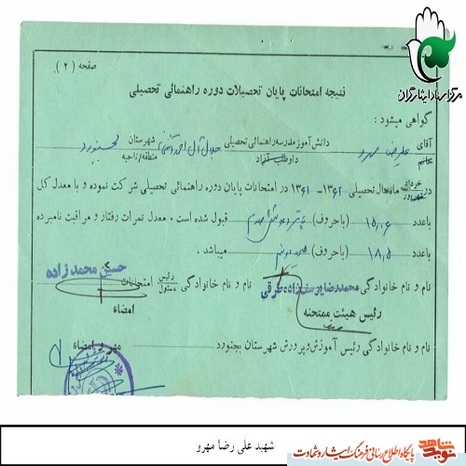 صفحه ( ۲ )
مرکز اسناد ایثارگران
نتیجه امتحانات پایان تحصیلات دوره راهنمائی تحصیلی
گواهی میشود :
آقای علیرضا مهرو دانش‌آموز مدرسه راهنمائی تحصیلی جلال آل احمد شهرستان بجنورد
خانم داوطلب آزاد منطقه/ناحیه
در خرداد ماه سال تحصیلی ۱۳۶۲ - ۱۳۶۱ در امتحانات پایان دوره راهنمائی تحصیلی شرکت نموده و با معدل کل
باعدد ۱۵/۰۶ (باحروف) پانزده و شش صدم قبول شده است . معدل نمرات رفتار و مراقبت نامبرده
باعدد ۱۸/۵ (باحروف) میباشد .
نام و نام خانوادگی محمدرضا یوسف‌زاده عرقی نام و نام خانوادگی رئیس امتحانات حسین محمدزاده
مسئول
رئیس هیئت ممتحنه امضاء
نام و نام خانوادگی رئیس آموزش و پرورش شهرستان بجنورد مهر و امضاء
شهید علی رضا مهرو
نوید شاهد پایگاه اطلاع رسانی فرهنگ ایثار و شهادت